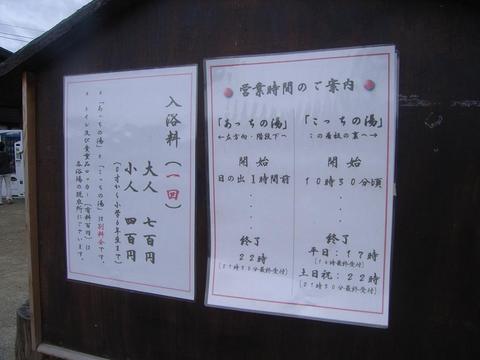 入浴料（一回）
大人 七百円
小人 四百円
（０才から小学６年生まで）
＊「あっちの湯」と「こっちの湯」は別料金です。
＊トイレ及び貴重品ロッカー（有料百円）は
各浴場の脱衣所にございます。
営業時間のご案内
「あっちの湯」
←左方向・階段下へ
開始
日の出１時間前
終了
２２時
（２１時３０分最終受付）
「こっちの湯」
この看板の裏へ→
開始
１０時３０分頃
終了
平日：１７時
（１６時最終受付）
土日祝：２２時
（２１時３０分最終受付）